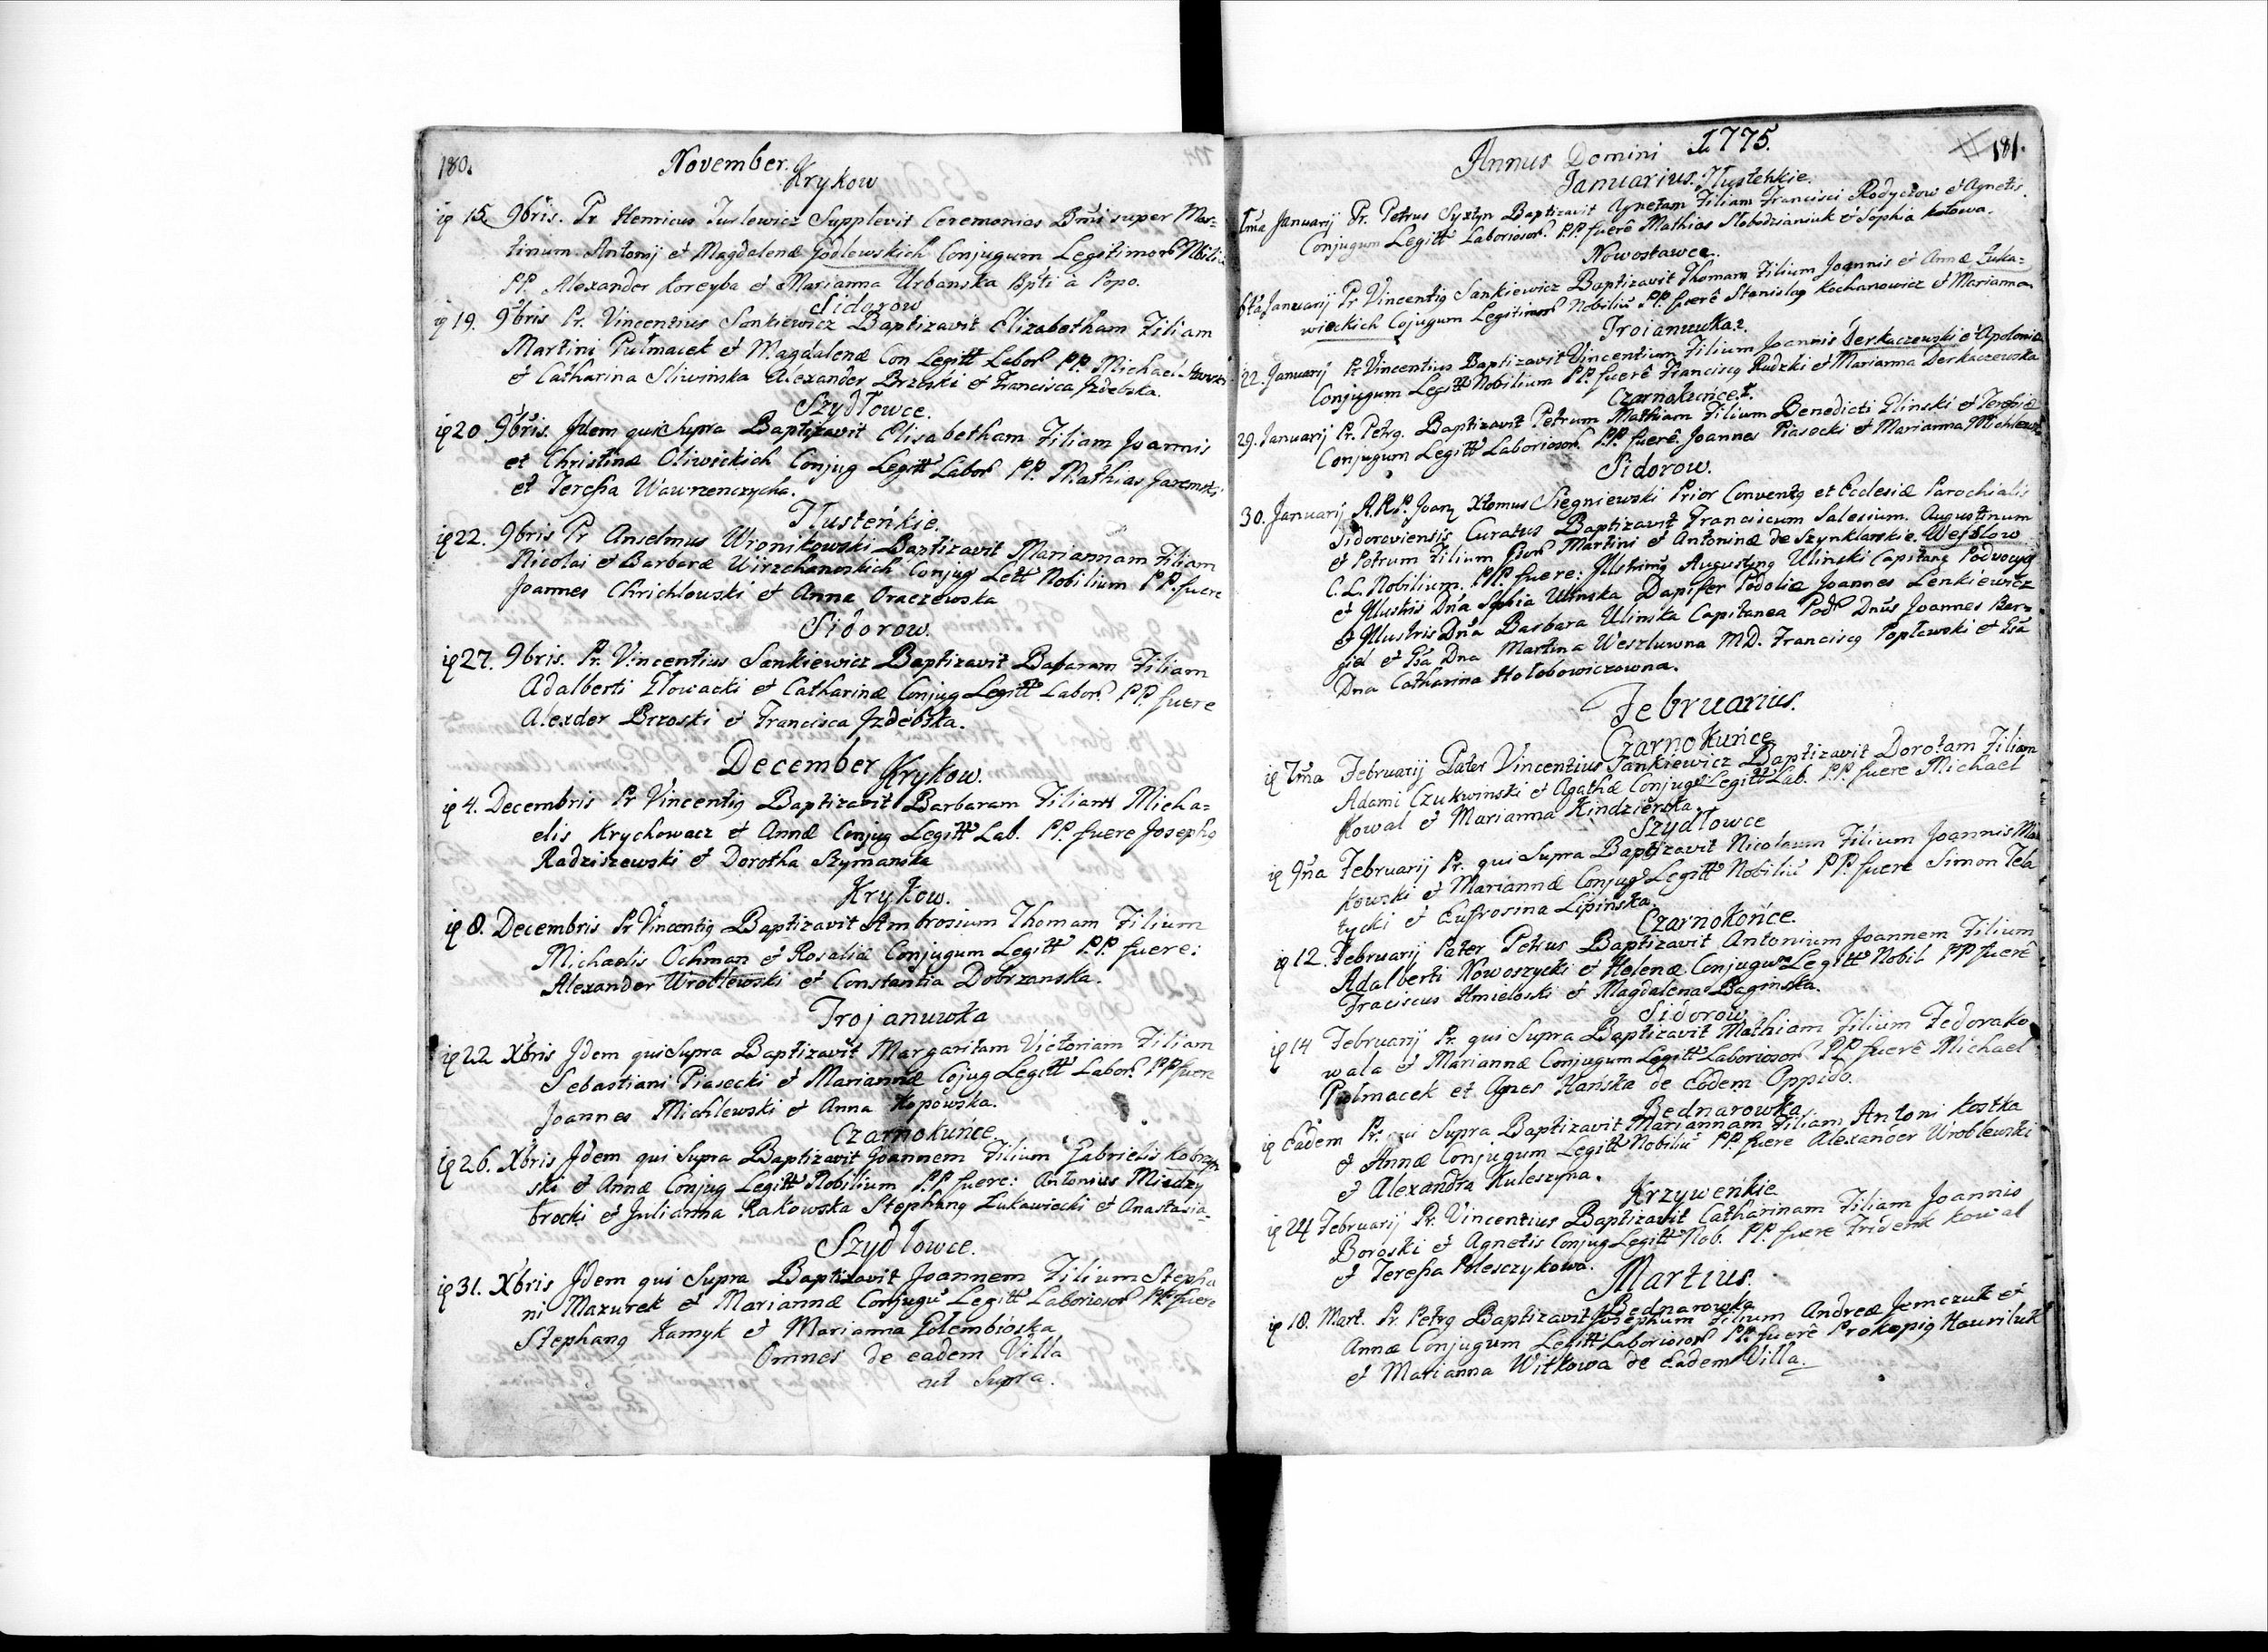 180.
November.
Krykow
ig 15. 9bris. Pr. Henricus Turlewicz Supplevit Ceremonias Bmi super Mar=
tinum Antonij et Magdalenæ Godlewskich Conjugum Legitimor Nobiliu
PP. Alexander Koreyba et Marianna Urbanska Bpti a Popo.
Sidorow
ig 19. 9bris Pr. Vincentius Sankiewicz Baptizavit Elizabetham Filiam
Martini Pułmacek et Magdalenæ Con Legitt Labor PP. Michael
et Catharina Sliwinska Alexander Brzoski et Francisca Jzdebska.
Szydłowce.
ig 20 9bris. Jdem qui Supra Baptizavit Elisabetham Filiam Joannis
et Christinæ Oliwickich Conjug Legitt Labor PP. Mathias Jaremski
et Teressa Wawrzenczycha.
Tlusteńkie.
ig 22. 9bris Pr Anselmus Wronikowski Baptizavit Mariannam Filiam
Nicolai et Barbaræ Wirzchanoskich Conjug Lett Nobilium PP. fuere
Joannes Chrichlouski et Anna Oraczewska
Sidorow.
ig 27. 9bris. Pr. Vincentius Sankiewicz Baptizavit Babaram Filiam
Adalberti Głowacki et Catharinæ Conjug Legitt Labor PP. fuere
Alexder Brzoski et Francisca Jzdebska.
December
Krykow.
ig 4. Decembris Pr Vincentig Baptizavit Barbaram Filiam Micha=
elis Krychowacz et Annæ Conjug Legitt Lab. PP. fuere Josephg
Radziszewski et Dorotha Szymanska
Krykow.
ig 8. Decembris Pr Vincentig Baptizavit Ambrosium Thomam Filium
Michaelis Ochman et Rosaliæ Conjugum Legitt P.P. fuere:
Alexander Wroblewski et Constantia Dobrzanska.
Trojanuwka
ig 22 Xbris Jdem qui Supra Baptizavit Margaritam Victoriam Filiam
Sebastiani Piasecki et Mariannæ Cojug Legitt Labor PP fuere
Joannes Michlewski et Anna Kopowska.
Czarnokuńce
ig 26. Xbris Jdem qui Supra Baptizavit Joannem Filium Gabrielis Kobrzyn
ski et Annæ Conjug Legitt Nobilium P.P fuere: Antonius Miedzy
brocki et Julianna Rakowska Stephang Łukawiecki et Anastasia
Szydłowce.
ig 31. Xbris Jdem qui Supra Baptizavit Joannem Filium Stepha
ni Mazurek et Mariannæ Conjugu Legitt Laborioso PP. fuere
Stephang Kamyk et Marianna Gołembioska
Omnes de eadem Villa
ut Supra.
181.
Annus Domini 1775.
Januarius. Tlustehkie.
1ma Januarij Pr. Petrus Syxtyn Baptizavit Agnetam Filiam Francisci Rodyczow et Agnetis
Conjugum Legitt Laboriosor PP. fuerê Mathias Słobodzianiuk et Sophia kołowa.
Nowostawce.
6ta Januarij Pr Vincentig Sankiewicz Baptizavit Thomam Filium Joannis et Annæ Łuka=
wieckich Cojugum Legitimor Nobiliu PP. fuerê Stanislag Kochanowicz et Marianna
Troianuwka.
22. Januarij Pr Vincentius Baptizavit Vincentium Filium Joannis Derkaczewski et Apoloniæ
Conjugum Legitt Nobilium PP. fuerê Franciscg Rudzki et Marianna Derkaczewska
Czarnokuńce.
29. Januarij Pr. Petrg. Baptizavit Petrum Mathiam Filium Benedicti Glinski et Teressiæ
Conjugum Legitt Laboriosor. PP. fuerê Joannes Piasecki et Marianna Michlewska
Sidorow.
30. Januarij A.R.P. Joanz Xtomus Siegniewski Prior Conventg et Ecclesiæ Parochialis
Sidoroviensis Curatus Baptizavit Franciscum Salesium. Augustinum
et Petrum Filium Gior Martini et Antoninæ de Szynklarskie Wessłow
C. L. Nobilium. PP. fuere: Jllstrimg Augusting Ulinski Capitang Podvoyg
et Jllustris Dna Sophia Ulinska Dapifer Podoliæ Joannes Lenkiewicz
et Jllustris Dna Barbara Ulinska Capitanea Pod Dnus Joannes Ber=
giel et Gsa Dna Martina Weszluwna MD. Franciscg Popławski et Gsa
Dna Catharina Hołobowiczowna.
Februarius.
Czarnokuńce
ig 7ma Februarij Pater Vincentius Sankiewicz Baptizavit Dorotam Filiam
Adami Czukwinski et Agathæ Conjug Legitt Lab. PP. fuere Michael
Kowal et Marianna Kindzierska.
Szydłowce
ig 9na Februarij Pr. qui Supra Baptizavit Nicolaum Filium Joannis Ma
kowski et Mariannæ Conjug Legitt Nobiliu PP. fuere Simon Tela
tycki et Eufrosina Lipinska.
Czarnokońce.
ig 12. Februarij Pater Petrus Baptizavit Antonium Joannem Filium
Adalberti Nowoszycki et Helenæ Conjugum Legitt Nobil PP fuerê
Fraciscus Hmieloski et Magdalena Baginska.
Sidorow
ig 14 Februarij Pr. qui Supra Baptizavit Mathiam Filium Fedora ko
wala et Mariannæ Conjugum Legitt Laboriosor PP. fuerê Michael
Pułmacek et Agnes Hańska de Eadem Oppido.
Bednarowka
ig Eadem Pr. qui Supra Baptizavit Mariannam Filiam Antoni Kostka
et Annæ Conjugum Legitt Nobiliu PP. fuere Alexander Wroblewski
et Alexandra Kuleszyna.
Krzyweńkie
ig 24 Februarij Pr. Vincentius Baptizavit Catharinam Filiam Joannis
Boroski et Agnetis Conjug Legitt Nob. PP. fuere Friderik Kowal
et Teressa Polesczykowa.
Martius.
Bednarowka
ig 18. Mart. Pr. Petrg Baptizavit Josephum Filium Andreæ Jemczuk et
Annæ Conjugum Legitt Laboriosor PP. fuerê Prokopig Hauriluk
et Marianna Witkowa de Eadem Villa.